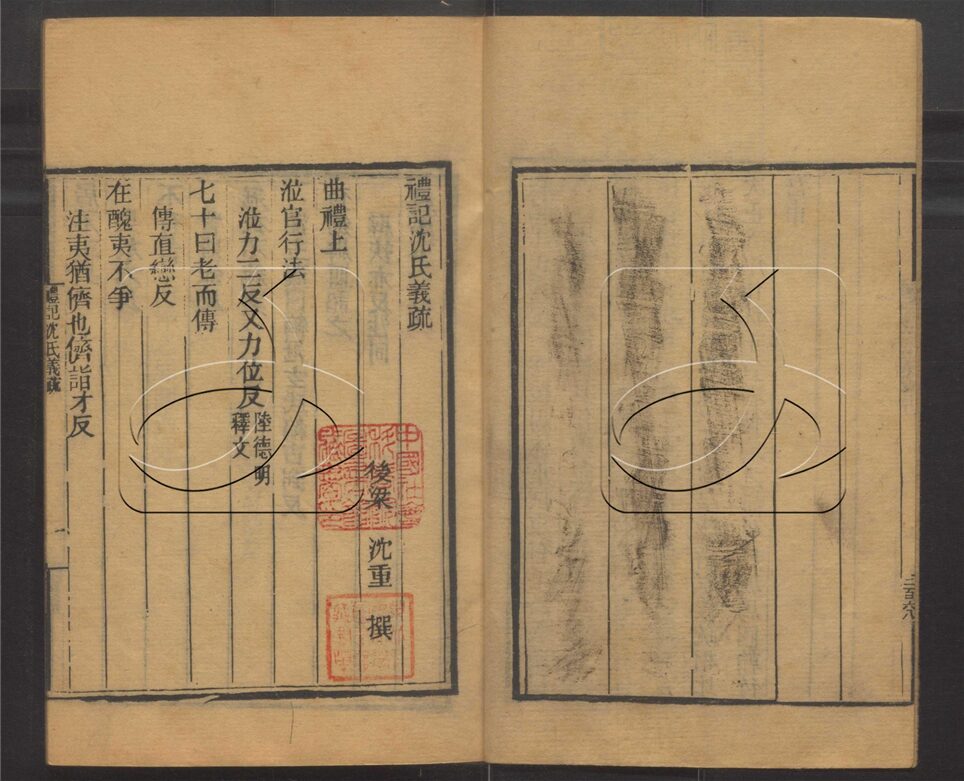 禮記沈氏義疏
後梁 沈重 撰
曲禮上
涖官行法
涖力二反又力位反陸德明釋文
七十曰老而傳
傳直戀反
在醜夷不爭
注夷猶儕也儕詣才反
禮記沈氏義疏
一